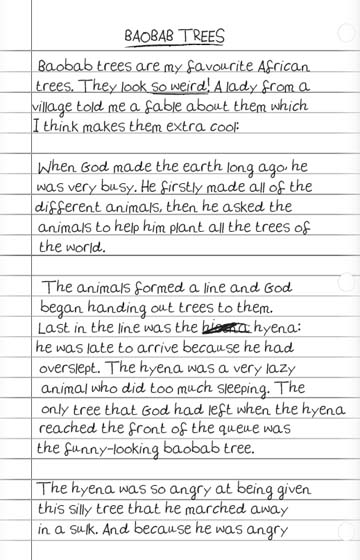 BAOBAB TREES
Baobab trees are my favourite African
trees. They look so weird! A lady from a
village told me a fable about them which
I think makes them extra cool:
When God made the earth long ago, he
was very busy. He firstly made all of the
different animals, then he asked the
animals to help him plant all the trees of
the world.
The animals formed a line and God
began handing out trees to them.
Last in the line was the hyena:
he was late to arrive because he had
overslept. The hyena was a very lazy
animal who did too much sleeping. The
only tree that God had left when the hyena
reached the front of the queue was
the funny-looking baobab tree.
The hyena was so angry at being given
this silly tree that he marched away
in a sulk. And because he was angry